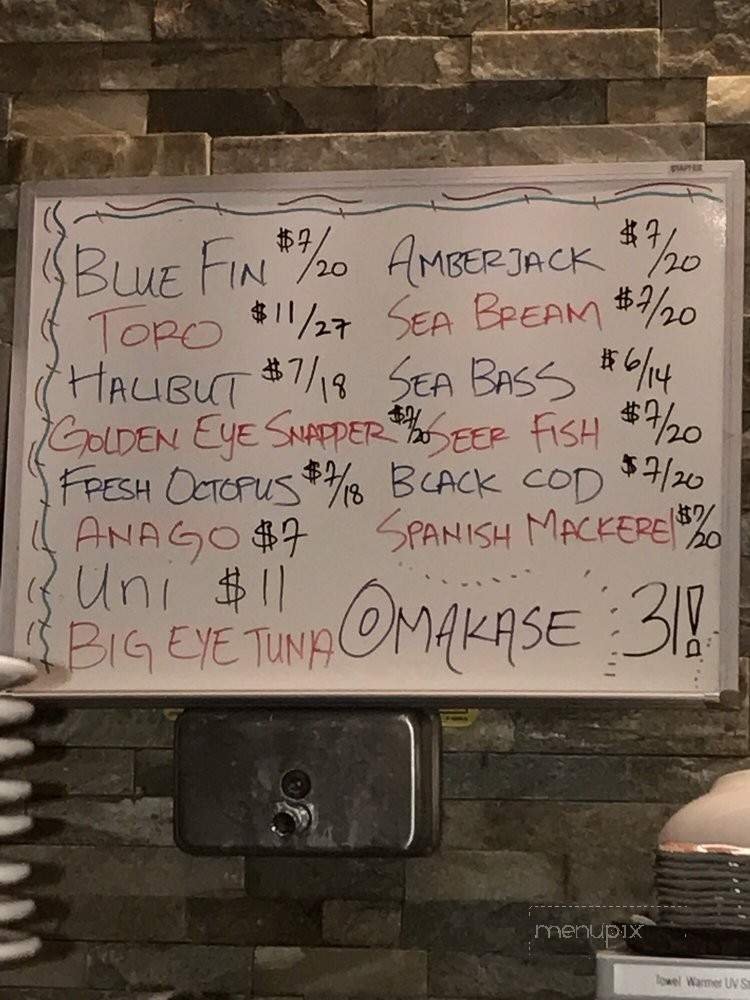 STAPLES
BLUE FIN $7/20
TORO $11/27
HALIBUT $7/18
GOLDEN EYE SNAPPER $7/20
FRESH OCTOPUS $7/18
ANAGO $7
Uni $11
BIG EYE TUNA
AMBERJACK $7/20
SEA BREAM $7/20
SEA BASS $6/14
SEER FISH $7/20
BLACK COD $7/20
SPANISH MACKEREl $7/20
OMAKASE 31!
menupix
Towel Warmer UV